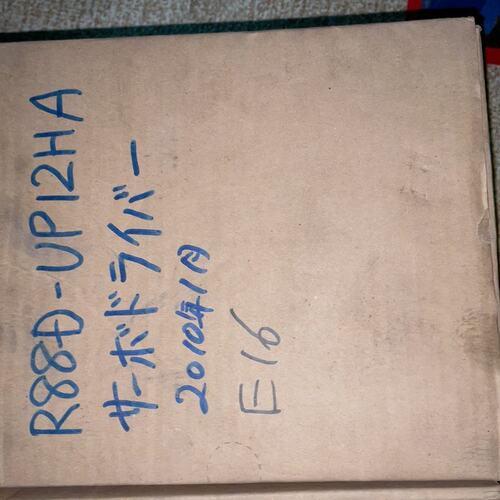 R88D-UP12HA
サーボドライバー
2010年1月
E16